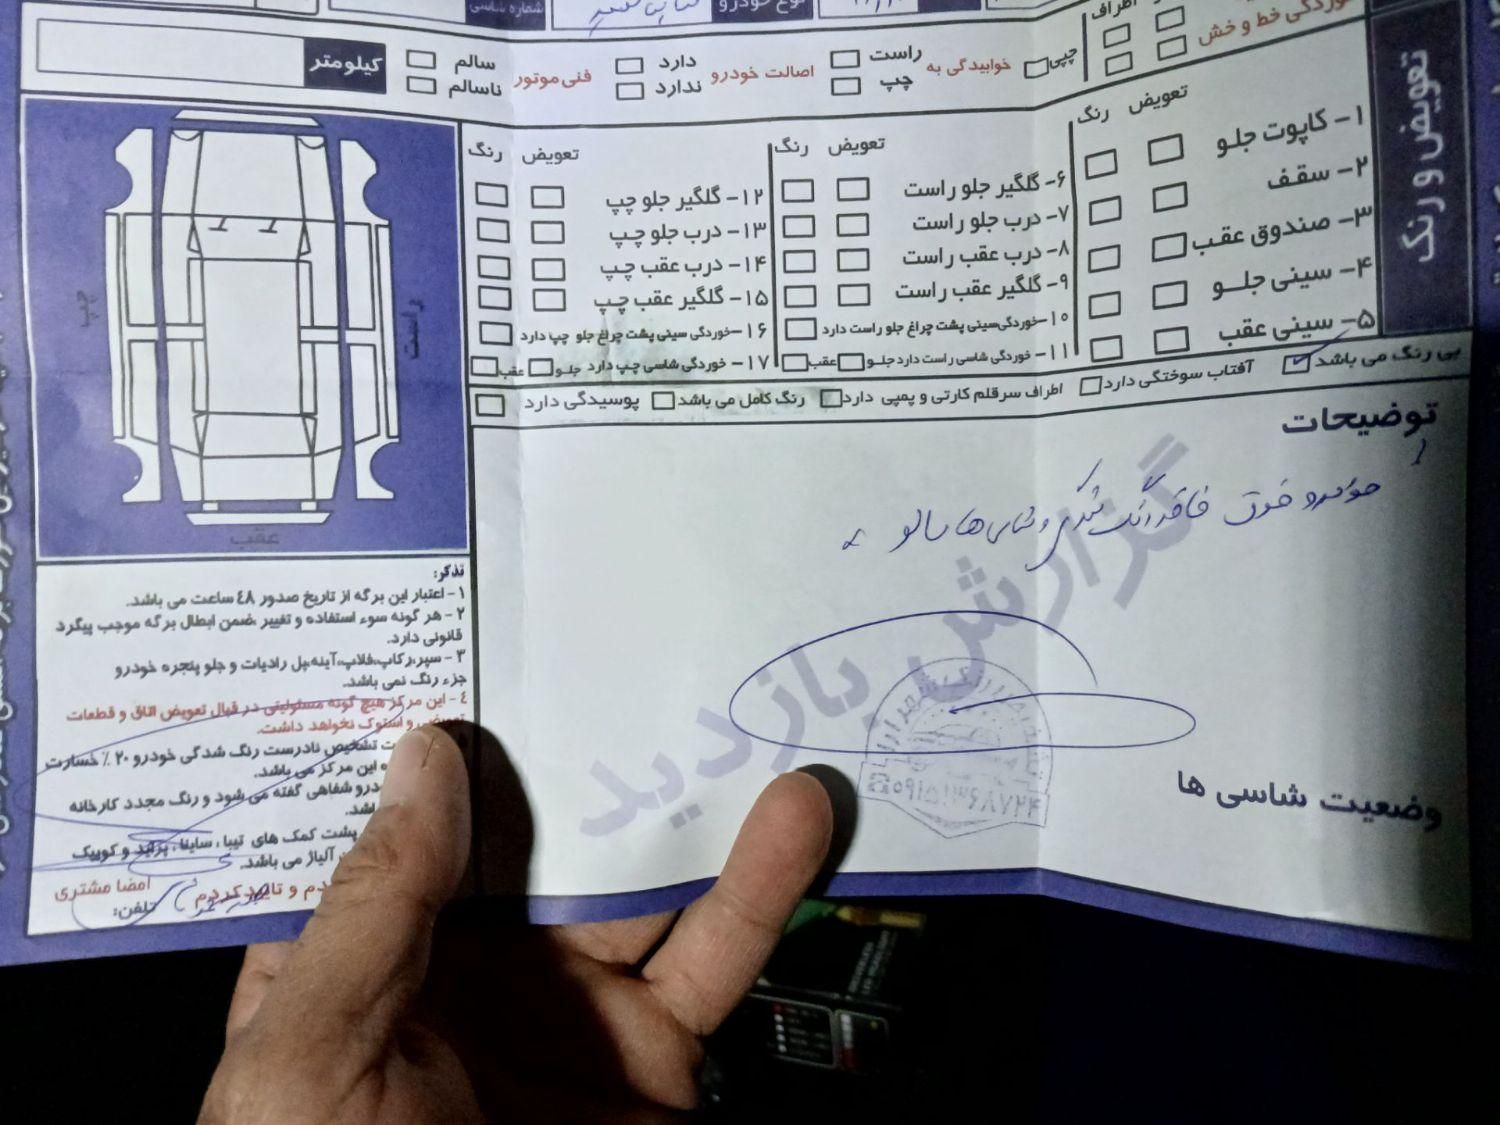 شماره شاسی
نوع خودرو
خوردگی خط و خش
اطراف
چپی
خوابیدگی به
راست
چپ
اصالت خودرو
دارد
ندارد
فنی موتور
سالم
ناسالم
کیلومتر
تعویض و رنگ
تعویض رنگ
۱- کاپوت جلو
۲- سقف
۳- صندوق عقب
۴- سینی جلو
۵- سینی عقب
تعویض رنگ
۶- گلگیر جلو راست
۷- درب جلو راست
۸- درب عقب راست
۹- گلگیر عقب راست
۱۰- خوردگی سینی پشت چراغ جلو راست دارد
۱۱- خوردگی شاسی راست دارد جلو عقب
تعویض رنگ
۱۲- گلگیر جلو چپ
۱۳- درب جلو چپ
۱۴- درب عقب چپ
۱۵- گلگیر عقب چپ
۱۶- خوردگی سینی پشت چراغ جلو چپ دارد
۱۷- خوردگی شاسی چپ دارد جلو عقب
بی رنگ می باشد
آفتاب سوختگی دارد
اطراف سرقلم کارتی و پمپی دارد
رنگ کامل می باشد
پوسیدگی دارد
چپ
راست
عقب
توضیحات
خودرو فوق فاقد رنگ شدگی و شاسی ها سالم
گزارش بازدید
۰۹۱۵۱۳۶۸۷۲۴
وضعیت شاسی ها
تذکر:
۱- اعتبار این برگه از تاریخ صدور ۴۸ ساعت می باشد.
۲- هر گونه سوء استفاده و تغییر ،ضمن ابطال برگه موجب پیگرد
قانونی دارد.
۳- سپر،رکاب،فلاپ،آینه،پل رادیات و جلو پنجره خودرو
جزء رنگ نمی باشد.
۴- این مرکز هیچ گونه مسئولیتی در قبال تعویض اتاق و قطعات
و استوک نخواهد داشت.
تشخیص نادرست رنگ شدگی خودرو ۲۰ ٪ خسارت
این مرکز می باشد.
شفاهی گفته می شود و رنگ مجدد کارخانه
پشت کمک های تیبا، ساینا، پراید و کوییک
آلیاژ می باشد.
و تایید کردم
امضا مشتری
تلفن: